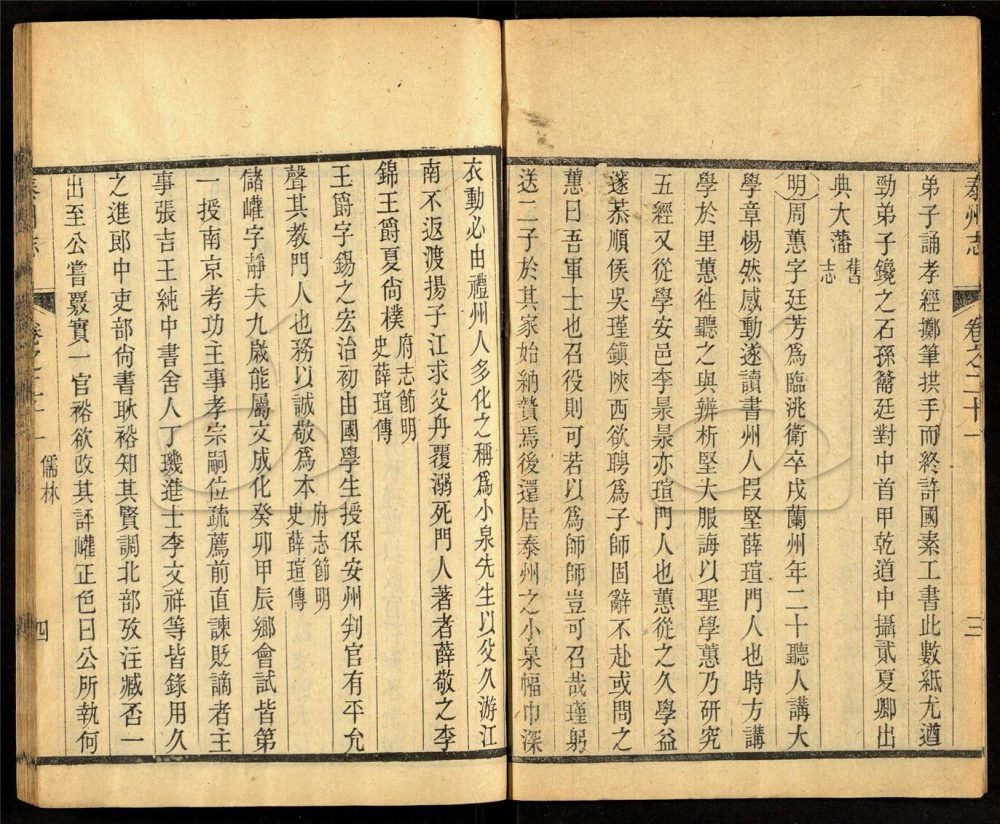 泰州志 卷之二十一 三
弟子誦孝經擲筆拱手而終許國素工書此數紙尤遒
勁弟子鑱之石孫籥廷對中首甲乾道中攝貳夏卿出
典大藩舊志
明周蕙字廷芳爲臨洮衛卒戍蘭州年二十聽人講大
學章惕然感動遂讀書州人叚堅薛瑄門人也時方講
學於里蕙徃聽之與辨析堅大服誨以聖學蕙乃研究
五經又從學安邑李㫤㫤亦瑄門人也蕙從之久學益
邃恭順侯吳瑾鎭陜西欲聘爲子師固辭不赴或問之
蕙曰吾軍士也召役則可若以爲師師豈可召哉瑾躬
送二子於其家始納贄焉後還居泰州之小泉幅巾深
衣動必由禮州人多化之稱爲小泉先生以父久游江
南不返渡揚子江求父舟覆溺死門人著者薛敬之李
錦王爵夏尙樸府志節明史薛瑄傳
王爵字錫之宏治初由國學生授保安州判官有平允
聲其教門人也務以誠敬爲本府志節明史薛瑄傳
儲巏字靜夫九歲能屬文成化癸卯甲辰鄉會試皆第
一授南京考功主事孝宗嗣位疏薦前直諫貶謫者主
事張吉王純中書舍人丁璣進士李文祥等皆錄用久
之進郎中吏部尙書耿裕知其賢調北部攷注臧否一
出至公嘗覈實一官裕欲改其評巏正色曰公所執何
卷之二十一 儒林 四